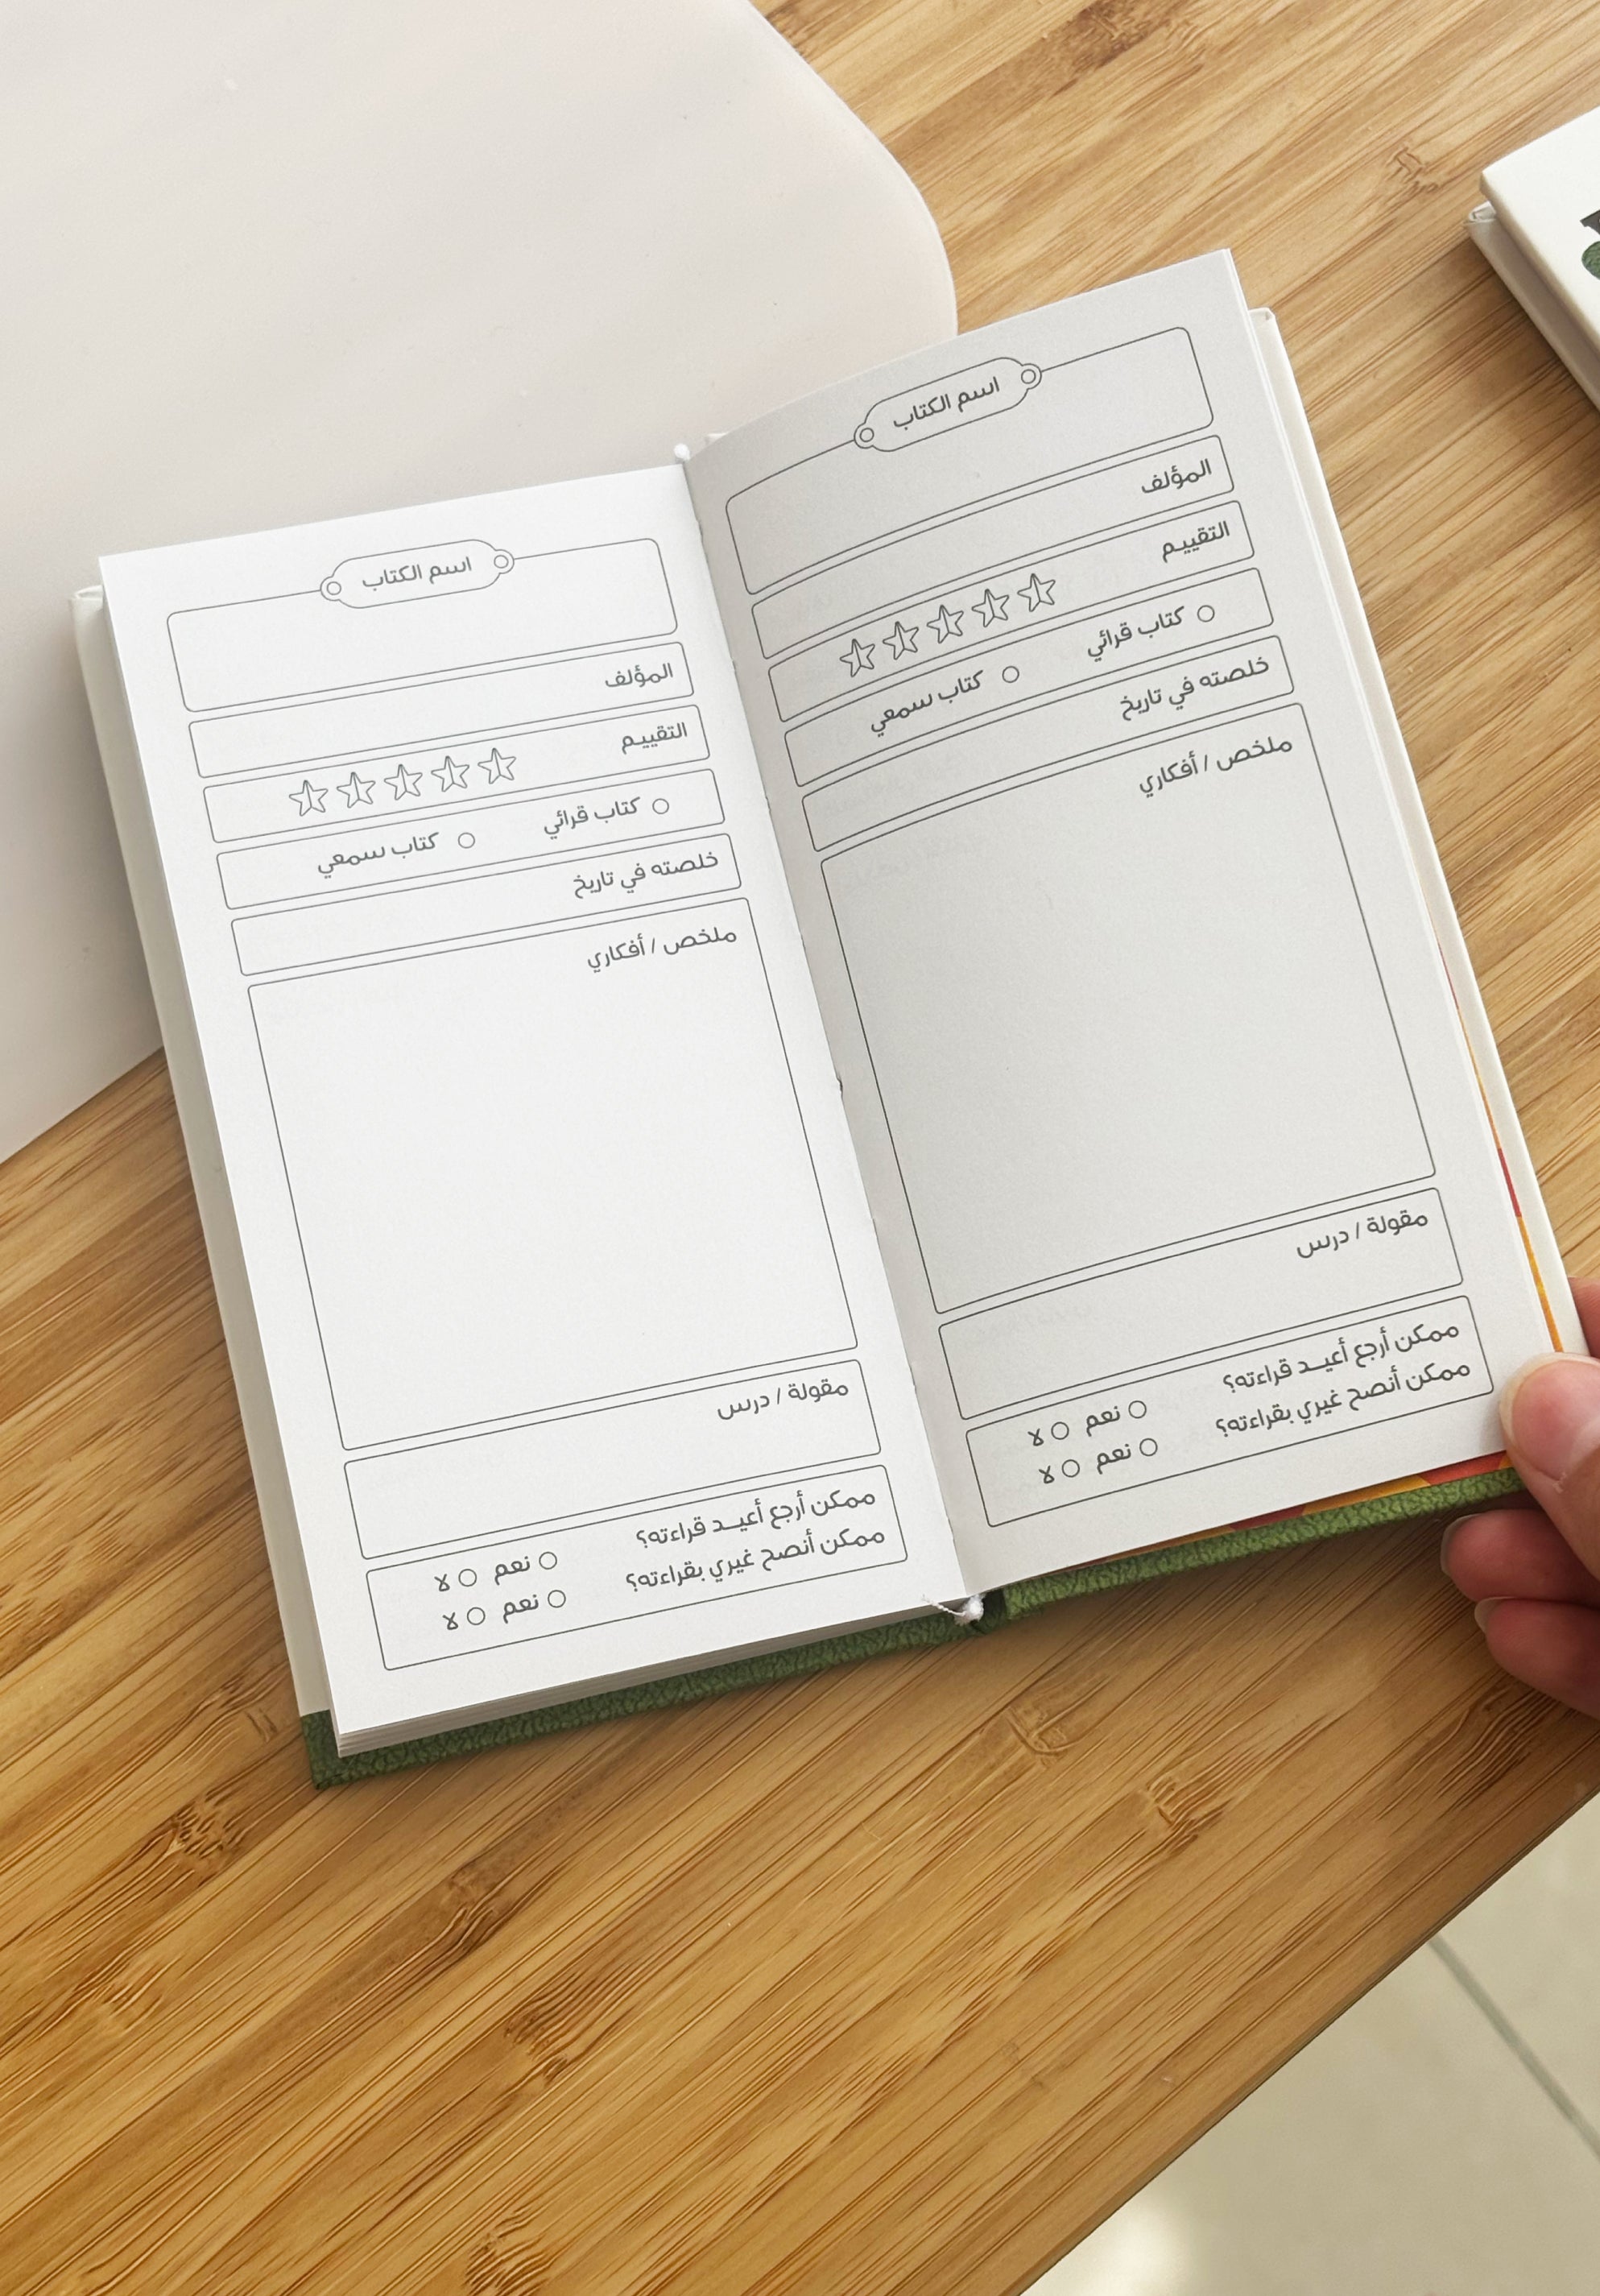 اسم الكتاب
المؤلف
التقييم
كتاب قرائي
كتاب سمعي
خلصته في تاريخ
ملخص / أفكاري
مقولة / درس
ممكن أرجع أعيد قراءته؟ نعم لا
ممكن أنصح غيري بقراءته؟ نعم لا
اسم الكتاب
المؤلف
التقييم
كتاب قرائي
كتاب سمعي
خلصته في تاريخ
ملخص / أفكاري
مقولة / درس
ممكن أرجع أعيد قراءته؟ نعم لا
ممكن أنصح غيري بقراءته؟ نعم لا